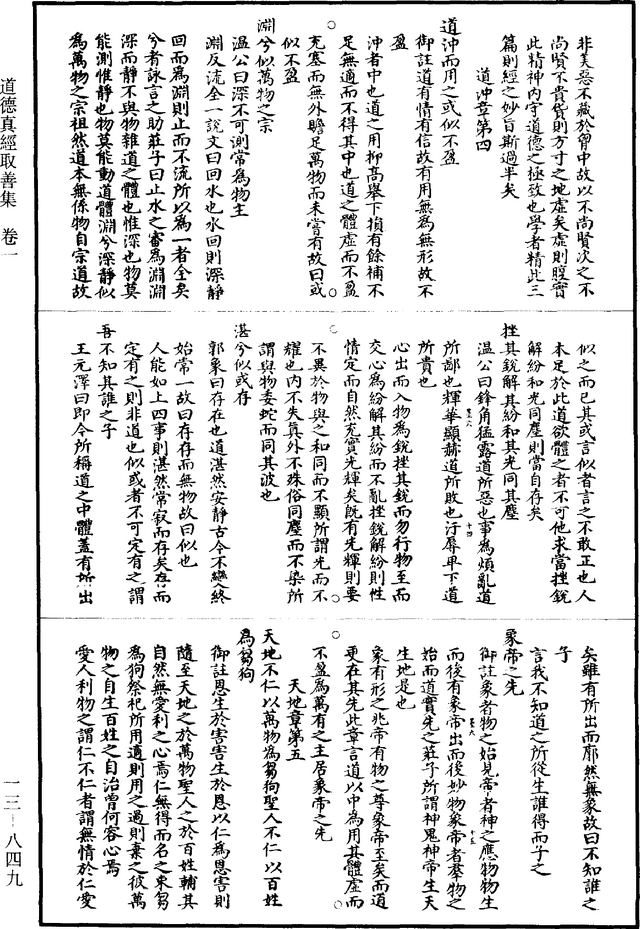 非美惡不藏於胷中故以不尚賢次之不
尚賢不貴貨則方寸之地虛矣虛則腹實
此精神内守道德之極致也學者精此三
篇則經之妙旨斯過半矣
道沖章第四
道沖而用之或似不盈
御註道有情有信故有用無為無形故不
盈
沖者中也道之用抑高舉下損有餘補不
足無適而不得其中也道之體虛而不盈
充塞而無外贍足萬物而未嘗有故曰或
似不盈
淵兮似萬物之宗
温公曰深不可測常為物主
淵反流全一說文曰回水也水回則深靜
回而為淵則止而不流所以為一者全矣
兮者詠言之助莊子曰止水之審為淵淵
深而靜不與物雜道之體也惟深也物莫
能測惟靜也物莫能動道體淵兮深靜似
為萬物之宗祖然道本無係物自宗道故
道德真經取善集 卷一
似之而已其或言似者言之不敢正也人
本足於此道欲體之者不可他求當挫銳
解紛和光同塵則當自存矣
挫其銳解其紛和其光同其塵
温公曰鋒角猛露道所惡也事為煩亂道
所鄙也輝華顯赫道所敗也汙辱卑下道
所貴也
心出而入物為銳挫其銳而勿行物至而
交心為紛解其紛而不亂挫銳解紛則性
情定而自然充實光輝矣既有光輝則要
不異於物與之和同而不顯所謂光而不
耀也内不失真外不殊俗同塵而不染所
謂與物委蛇而同其波也
湛兮似或存
郭象曰存在也道湛然安靜古今不變終
始常一故曰存存而無物故曰似也
人能如上四事則湛然常寂而存矣存而
定有之則非道也似或者不可定有之謂
吾不知其誰之子
王元澤曰即今所稱道之中體蓋有所出
矣雖有所出而廓然無象故曰不知誰之
子
言我不知道之所從生誰得而子之
象帝之先
御註象者物之始見帝者神之應物物生
而後有象帝出而後妙物象帝者羣物之
始而道實先之莊子所謂神鬼神帝生天
生地是也
象有形之兆帝有物之尊象帝至矣而道
更在其先此章言道以中為用其體虛而
不盈為萬有之主居象帝之先
天地章第五
天地不仁以萬物為芻狗聖人不仁以百姓
為芻狗
御註恩生於害害生於恩以仁為恩害則
隨至天地之於萬物聖人之於百姓輔其
自然無愛利之心焉仁無得而名之束芻
為狗祭祀所用適則用之過則棄之彼萬
物之自生百姓之自治曾何容心焉
愛人利物之謂仁不仁者謂無情於仁愛
一三—八四九